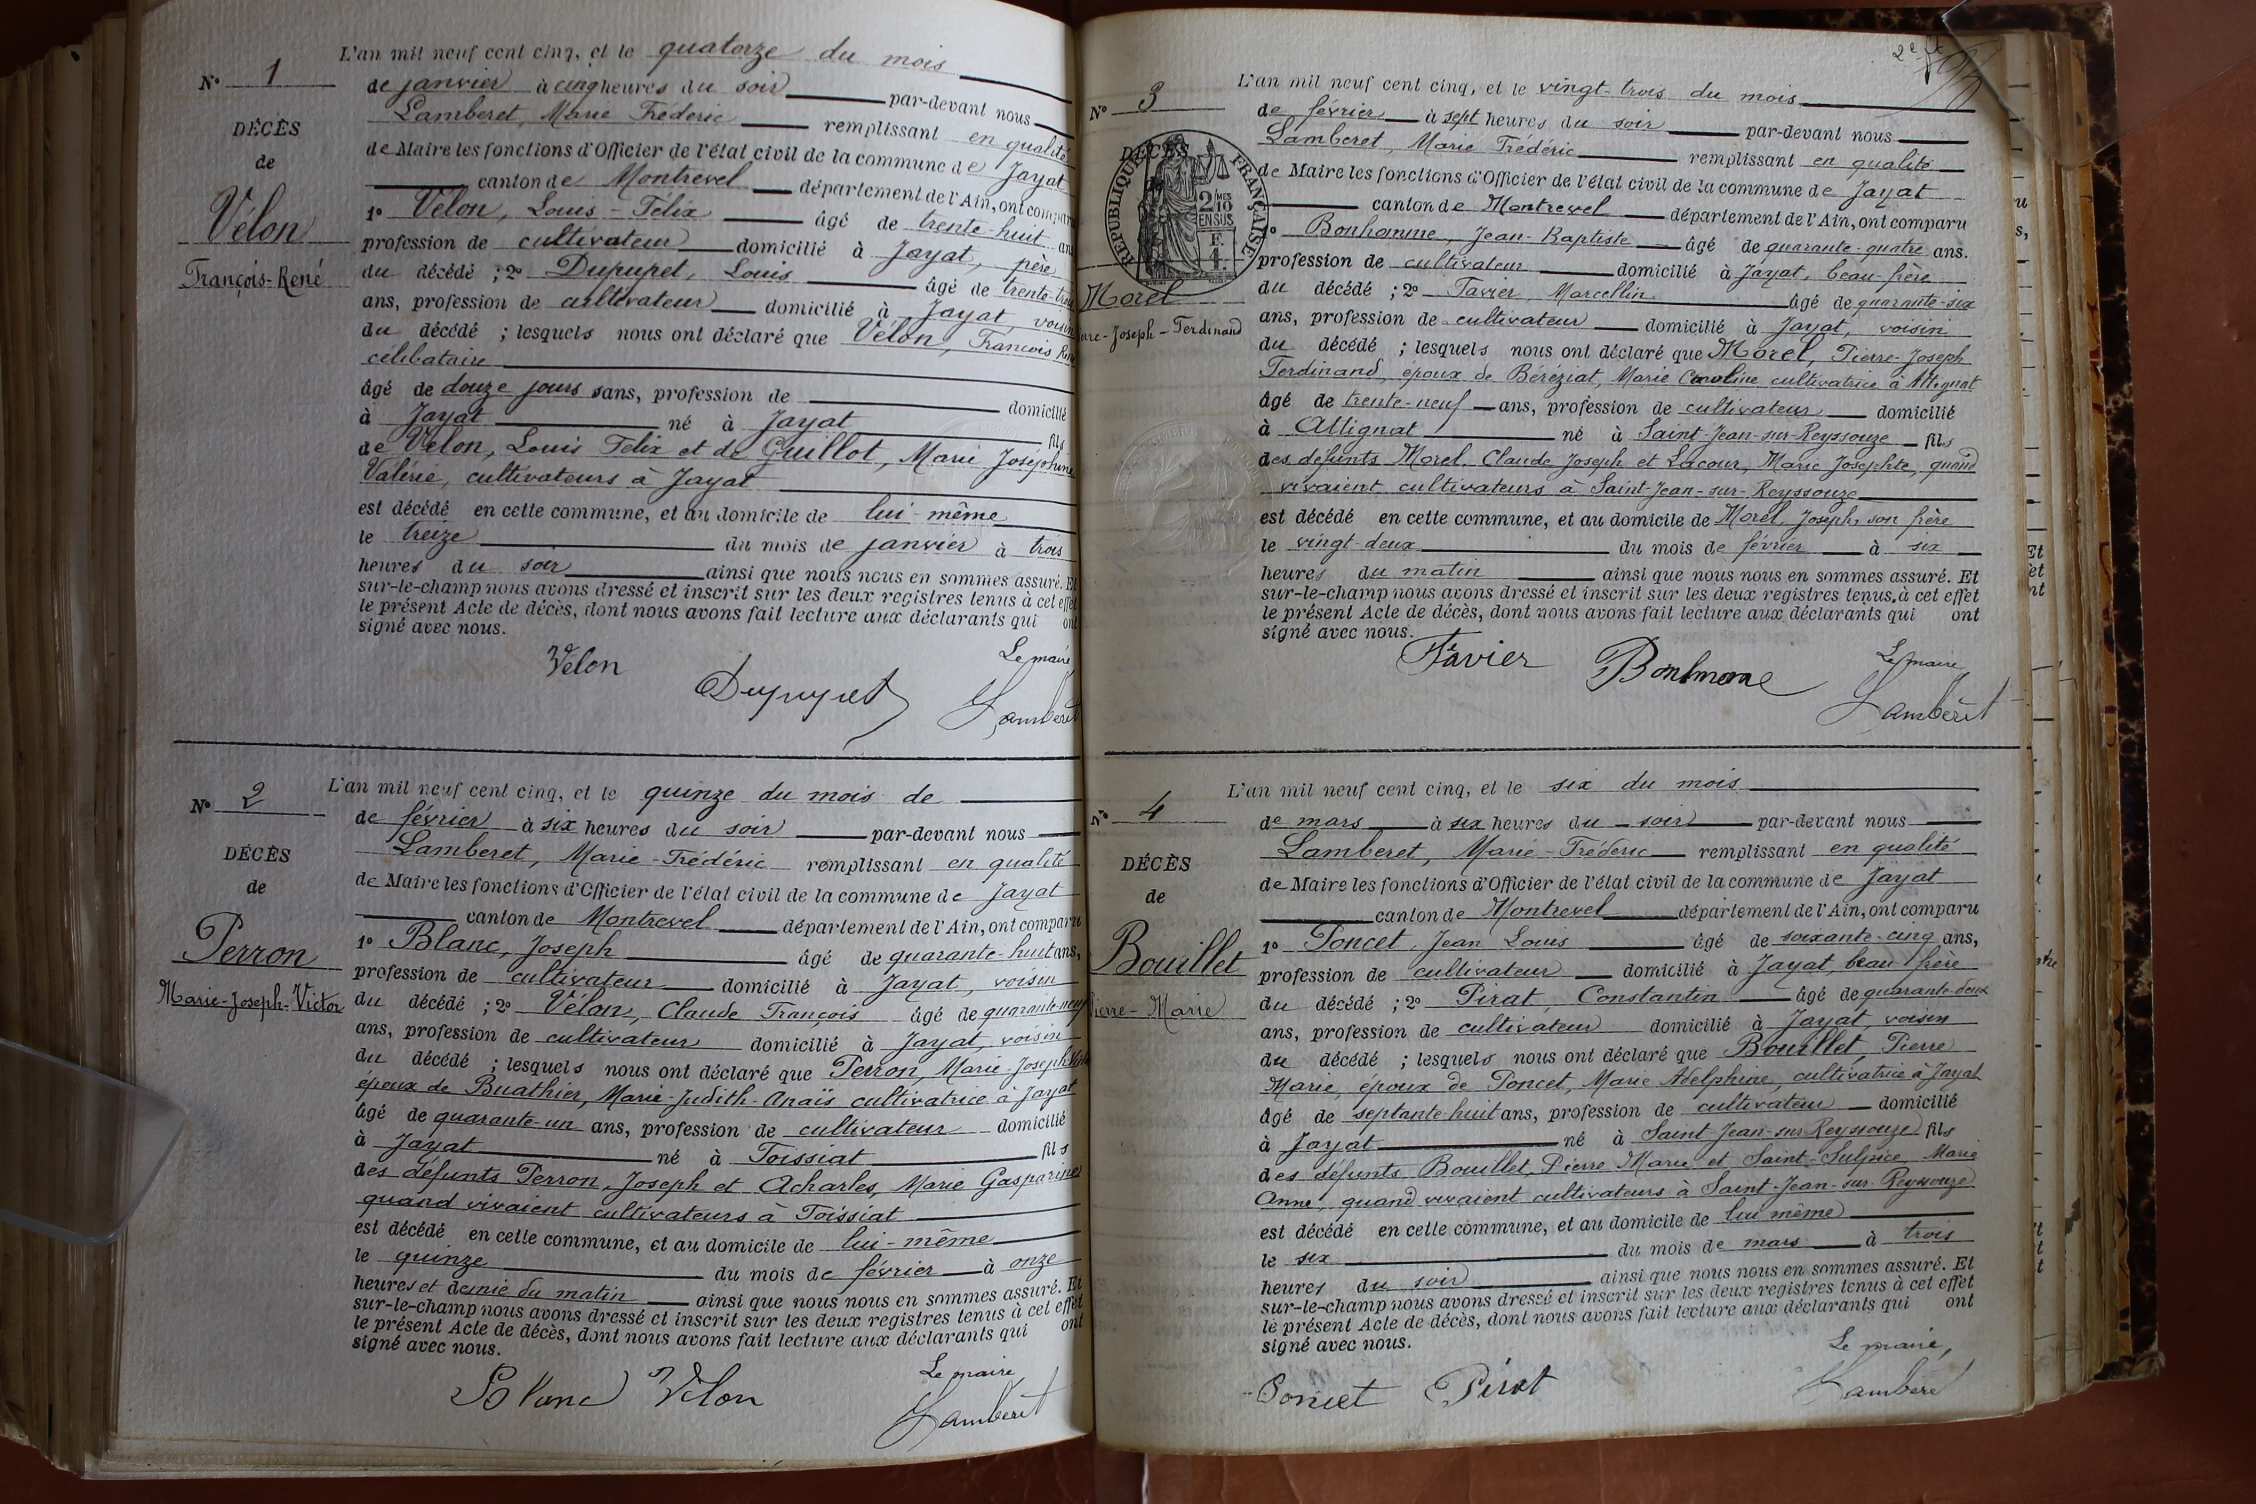 L'an mil neuf cent cinq, et le quatorze du mois
N° 1
de janvier à cinq heures du soir par-devant nous
DÉCÈS
Lamberet, Marie Fréderic remplissant en qualité
de
de Maire les fonctions d'Officier de l'état civil de la commune de Jayat
canton de Montrevel département de l'Ain, ont comparu
Vélon
1° Vélon, Louis-Félix âgé de trente-huit ans
François-René
profession de cultivateur domicilié à Jayat, père
du décédé ; 2° Dupupet, Louis âgé de trente-trois
ans, profession de cultivateur domicilié à Jayat, voisin
du décédé ; lesquels nous ont déclaré que Vélon, François René
célibataire
âgé de douze jours sans, profession de domicilié
à Jayat né à Jayat fils
de Vélon, Louis Felix et de Guillot, Marie Joséphine
Valérie, cultivateurs à Jayat
est décédé en cette commune, et au domicile de lui-même
le treize du mois de janvier à trois
heures du soir ainsi que nous nous en sommes assuré. Et
sur-le-champ nous avons dressé et inscrit sur les deux registres tenus à cet effet
le présent Acte de décès, dont nous avons fait lecture aux déclarants qui ont
signé avec nous.
Vélon
Dupupet
Le maire
Lamberet
L'an mil neuf cent cinq, et le quinze du mois de
N° 2
de février à six heures du soir par-devant nous
DÉCÈS
Lamberet, Marie-Frédéric remplissant en qualité
de
de Maire les fonctions d'Officier de l'état civil de la commune de Jayat
canton de Montrevel département de l'Ain, ont comparu
Perron
1° Blanc, Joseph âgé de quarante-huit ans,
Marie-Joseph-Victor
profession de cultivateur domicilié à Jayat, voisin
du décédé ; 2° Vélon, Claude François âgé de quarante-neuf
ans, profession de cultivateur domicilié à Jayat, voisin
du décédé ; lesquels nous ont déclaré que Perron, Marie-Joseph Victor
époux de Buathier, Marie-Judith-Anaïs cultivatrice à Jayat
âgé de quarante-un ans, profession de cultivateur domicilié
à Jayat né à Toissiat fils
des défunts Perron, Joseph et Acharles, Marie Gasparine
quand vivaient cultivateurs à Toissiat
est décédé en cette commune, et au domicile de lui-même
le quinze du mois de février à onze
heures et demie du matin ainsi que nous nous en sommes assuré. Et
sur-le-champ nous avons dressé et inscrit sur les deux registres tenus à cet effet
le présent Acte de décès, dont nous avons fait lecture aux déclarants qui ont
signé avec nous.
Blanc Vélon
Le maire
Lamberet
2e
L'an mil neuf cent cinq, et le vingt-trois du mois
N° 3
de février à sept heures du soir par-devant nous
DÉCÈS
Lamberet, Marie Frédéric remplissant en qualité
RÉPUBLIQUE FRANÇAISE
2/10 MES EN SUS
de Maire les fonctions d'Officier de l'état civil de la commune de Jayat
canton de Montrevel département de l'Ain, ont comparu
1° Bonhomme, Jean-Baptiste âgé de quarante-quatre ans.
profession de cultivateur domicilié à Jayat, beau-frère
Morel
du décédé ; 2° Favier, Marcellin âgé de quarante-six
-Joseph-Ferdinand
ans, profession de cultivateur domicilié à Jayat, voisin
du décédé ; lesquels nous ont déclaré que Morel, Pierre-Joseph
Ferdinand, epoux de Béréziat, Marie Caroline cultivatrice à Attignat
âgé de trente-neuf ans, profession de cultivateur domicilié
à Attignat né à Saint-Jean-sur-Reyssouze fils
des défunts Morel, Claude Joseph et Lacour, Marie Josephte, quand
vivaient cultivateurs à Saint-Jean-sur-Reyssouze
est décédé en cette commune, et au domicile de Morel, Joseph, son frère
le vingt-deux du mois de février à six
heures du matin ainsi que nous nous en sommes assuré. Et
sur-le-champ nous avons dressé et inscrit sur les deux registres tenus, à cet effet
le présent Acte de décès, dont nous avons fait lecture aux déclarants qui ont
signé avec nous.
Favier
Bonhomme
Le maire
Lamberet
L'an mil neuf cent cinq, et le six du mois
N° 4
de mars à six heures du soir par-devant nous
DÉCÈS
Lamberet, Marie-Fréderic remplissant en qualité
de
de Maire les fonctions d'Officier de l'état civil de la commune de Jayat
canton de Montrevel département de l'Ain, ont comparu
Bouillet
1° Poncet, Jean Louis âgé de soixante-cinq ans,
Pierre-Marie
profession de cultivateur domicilié à Jayat, beau frère
du décédé ; 2° Pirat, Constantin âgé de quarante-deux
ans, profession de cultivateur domicilié à Jayat, voisin
du décédé ; lesquels nous ont déclaré que Bouillet, Pierre
Marie, époux de Poncet, Marie Adelphine, cultivatrice à Jayat
âgé de septante-huit ans, profession de cultivateur domicilié
à Jayat né à Saint-Jean-sur Reyssouze fils
des défunts Bouillet, Pierre Marie et Saint-Sulpice, Marie
Anne, quand vivaient cultivateurs à Saint-Jean-sur-Reyssouze
est décédé en cette commune, et au domicile de lui même
le six du mois de mars à trois
heures du soir ainsi que nous nous en sommes assuré. Et
sur-le-champ nous avons dressé et inscrit sur les deux registres tenus à cet effet
le présent Acte de décès, dont nous avons fait lecture aux déclarants qui ont
signé avec nous.
Poncet Pirat
Le maire,
Lamberet